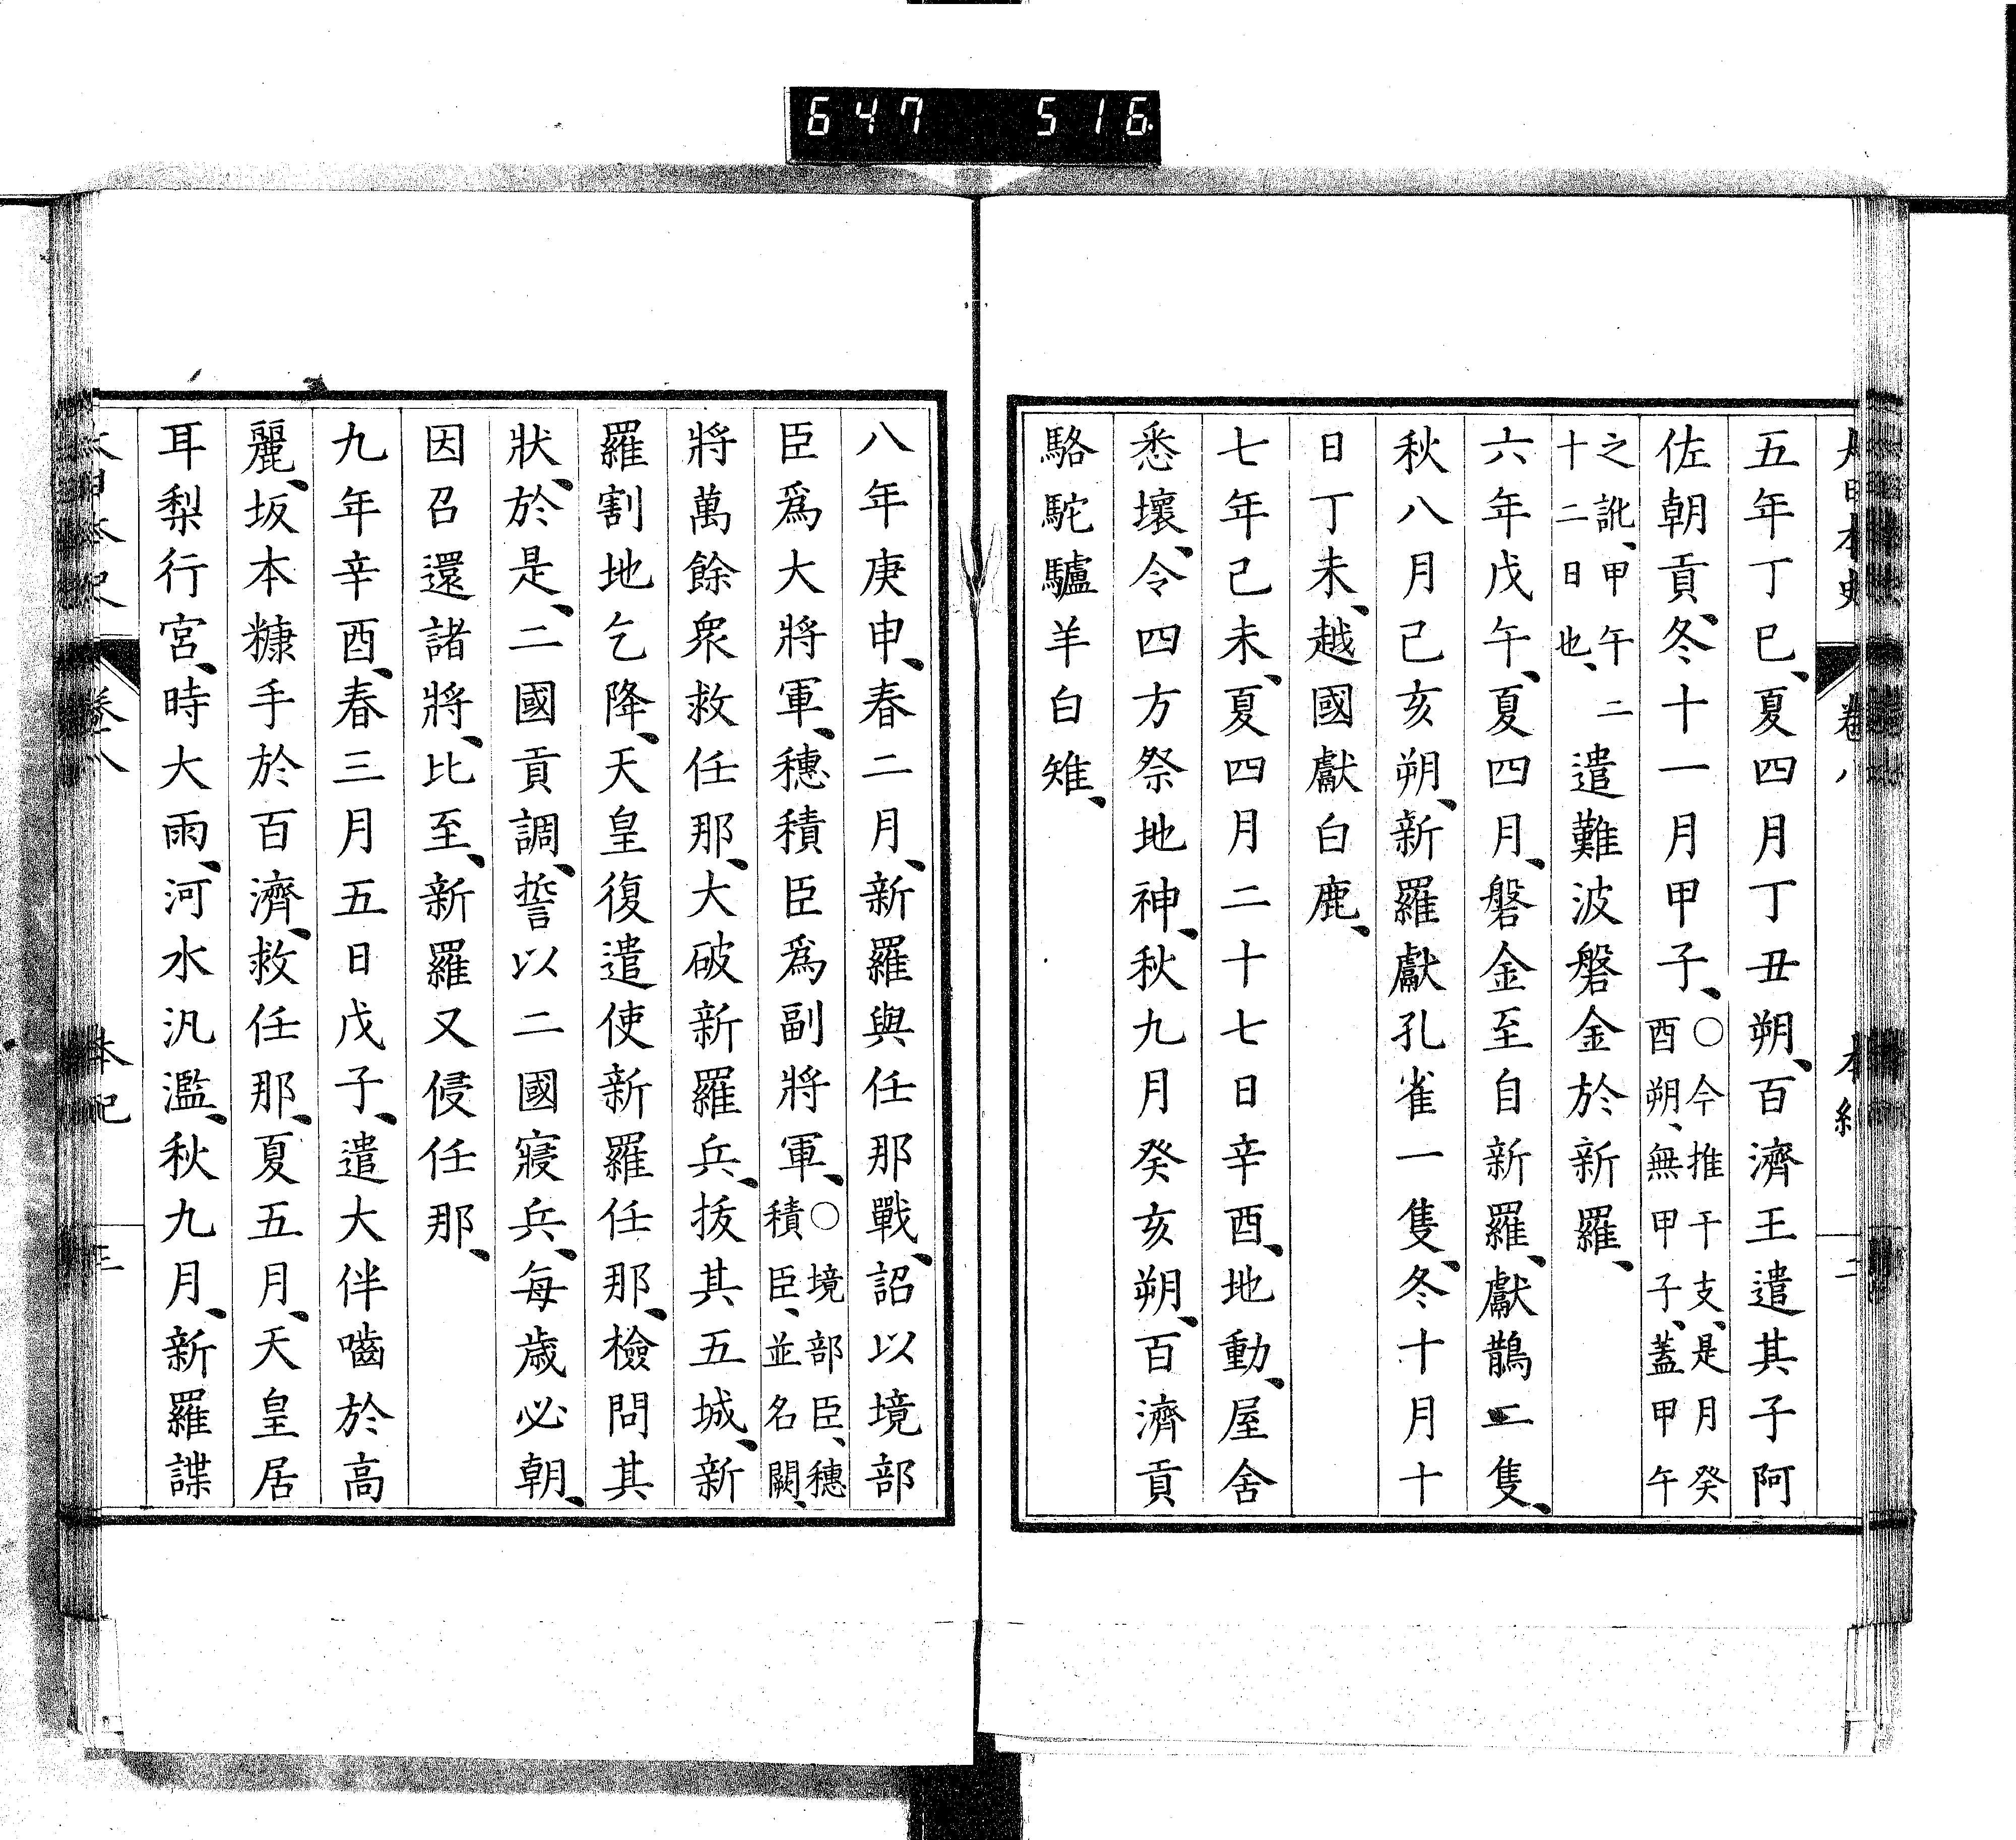 647 516
大日本史 卷八 本紀 二
五年丁巳、夏四月丁丑朔、百濟王遣其子阿
佐朝貢、冬十一月甲子、○今推干支、是月癸酉朔、無甲子、蓋甲午
之訛、甲午二十二日也、遣難波磐金於新羅、
六年戊午、夏四月、磐金至自新羅、獻鵲二隻、
秋八月己亥朔、新羅獻孔雀一隻、冬十月十
日丁未、越國獻白鹿、
七年己未、夏四月二十七日辛酉、地動、屋舍
悉壞、令四方祭地神、秋九月癸亥朔、百濟貢
駱駝驢羊白雉、
八年庚申、春二月、新羅與任那戰、詔以境部
臣爲大將軍、穗積臣爲副將軍、○境部臣、穗積臣、並名闕、
將萬餘衆救任那、大破新羅兵、拔其五城、新
羅割地乞降、天皇復遣使新羅任那、檢問其
狀、於是、二國貢調、誓以二國寢兵、每歲必朝、
因召還諸將、比至、新羅又侵任那、
九年辛酉、春三月五日戊子、遣大伴嚙於高
麗、坂本糠手於百濟、救任那、夏五月、天皇居
耳梨行宮、時大雨、河水汎濫、秋九月、新羅諜
大日本史 卷八 本紀 三